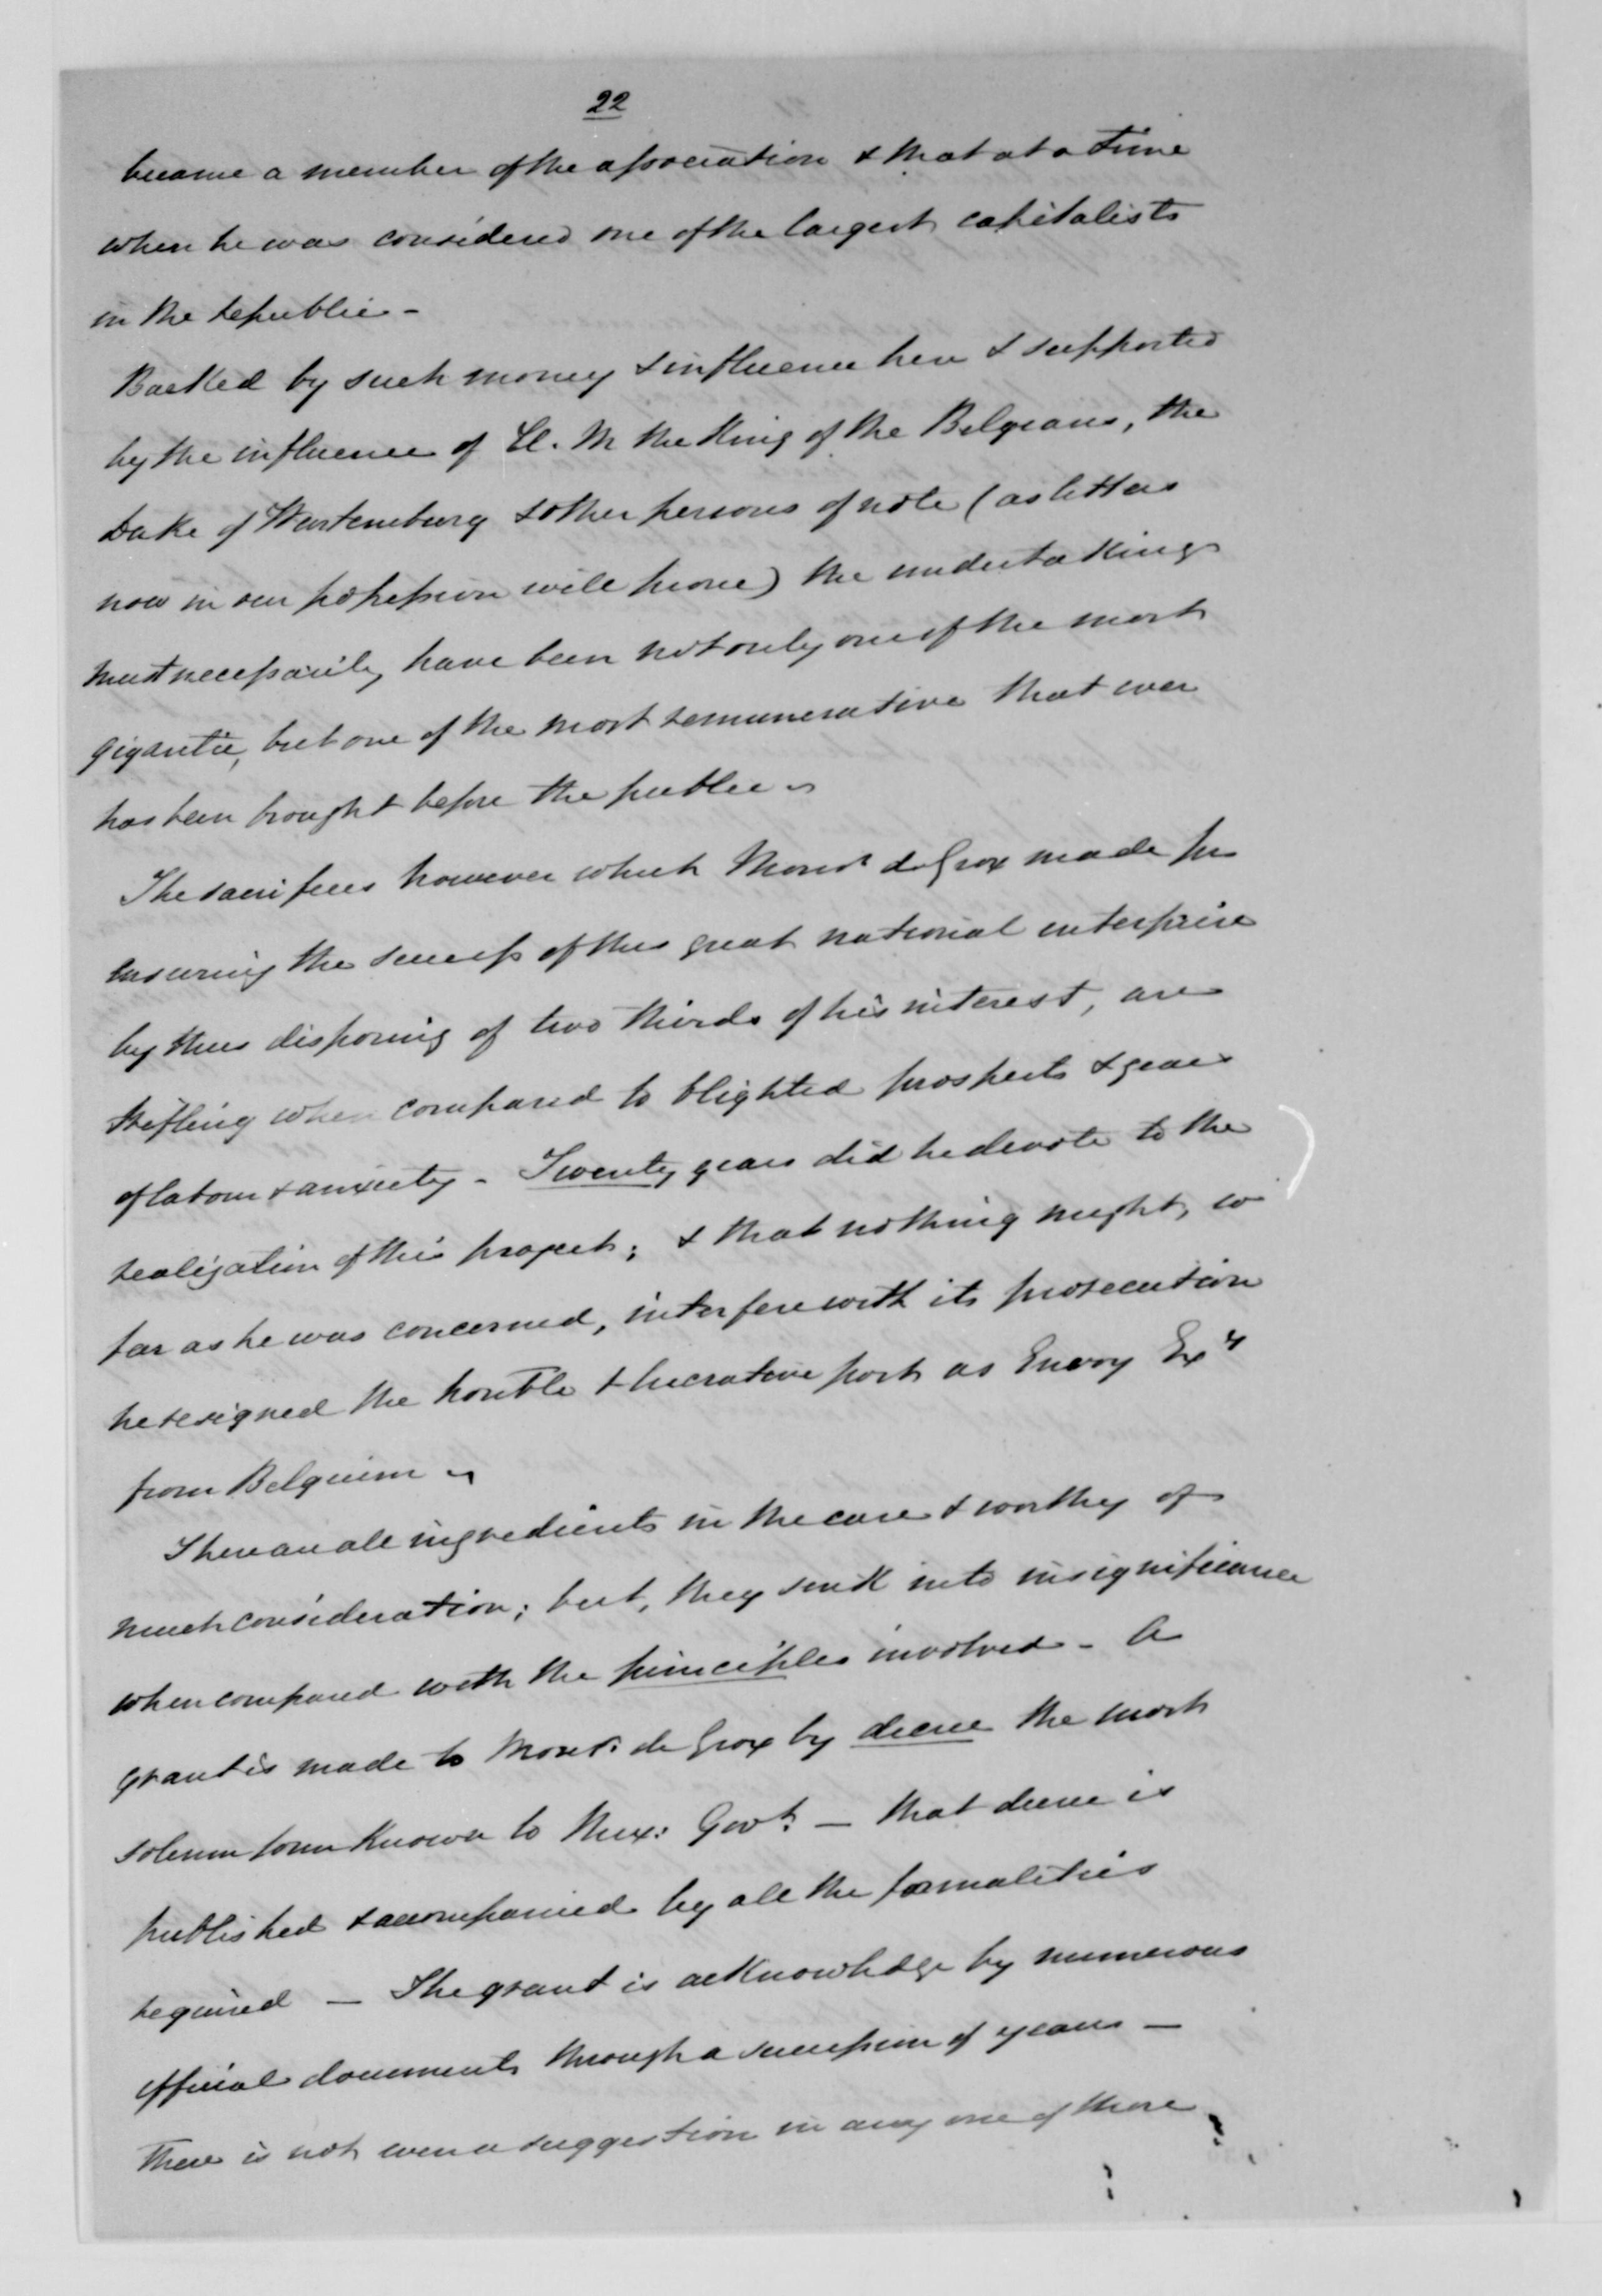 22
became a member of the association & that at a time
when he was considered one of the largest capitalists
in the republic -
Backed by such money & influence here & supported
by the influence of H. M the King of the Belgians, the
Duke of Wurtemburg & other persons of note (as letters
now in our possession will prove) the undertaking
must necessarily have been not only one of the most
gigantic, but one of the most remunerative that ever
has been brought before the public -
The sacrifices however which Monsr de Grox made for
ensuring the success of this great national enterprise
by thus disposing of two thirds of his interest, are
trifling when compared to blighted prospects & years
of labour & anxiety - Twenty years did he devote to the
realization of this project; & that nothing might, so
far as he was concerned, interfere with its prosecution
he resigned the honble & lucrative post as Envoy Exy
from Belgium -
These are all ingredients in the case & worthy of
much consideration; but, they sink into insignificance
when compared with the principles involved - A
grant is made to Monsr. de Grox by decree the most
solemn form known to Mex: Govt. - that decree is
published & accompanied by all the formalities
required - The grant is acknowledge by numerous
official documents through a succession of years -
There is not even a suggestion in any one of these